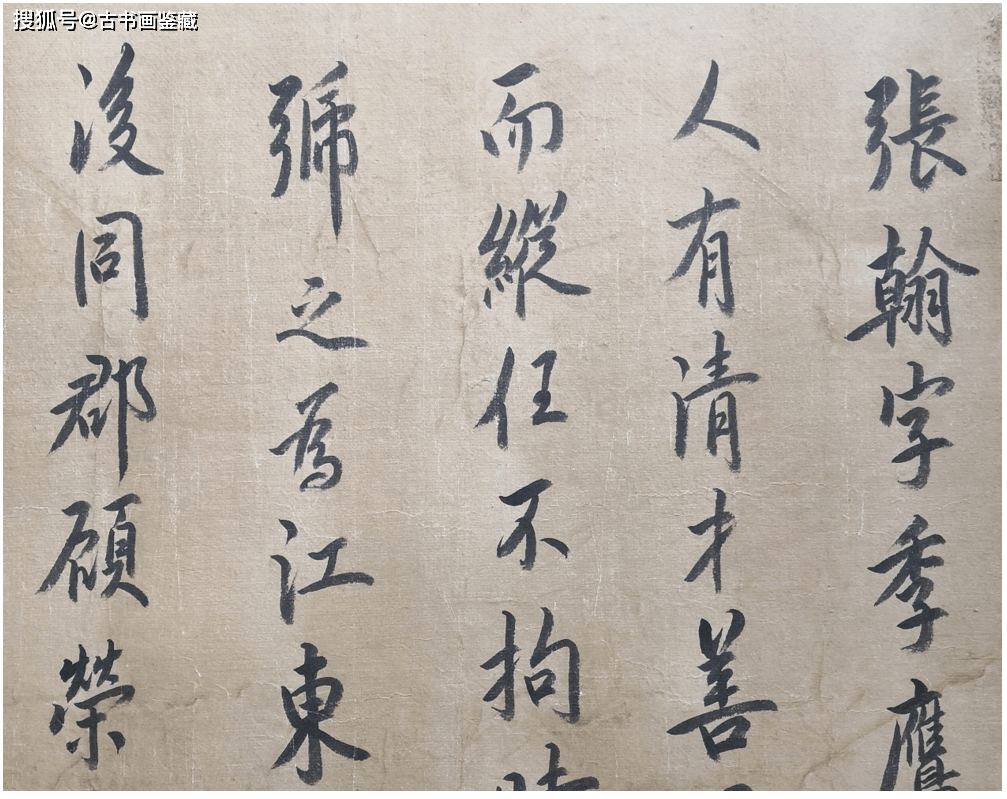 搜狐号@古书画鉴藏
張翰字季鷹
人有清才善
而縱任不拘
號之為江東
後同郡顧榮